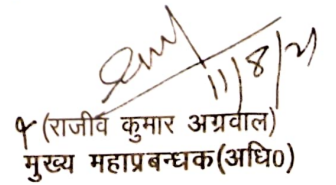 11/8/21
(राजीव कुमार अग्रवाल)
मुख्य महाप्रबन्धक(अधि0)